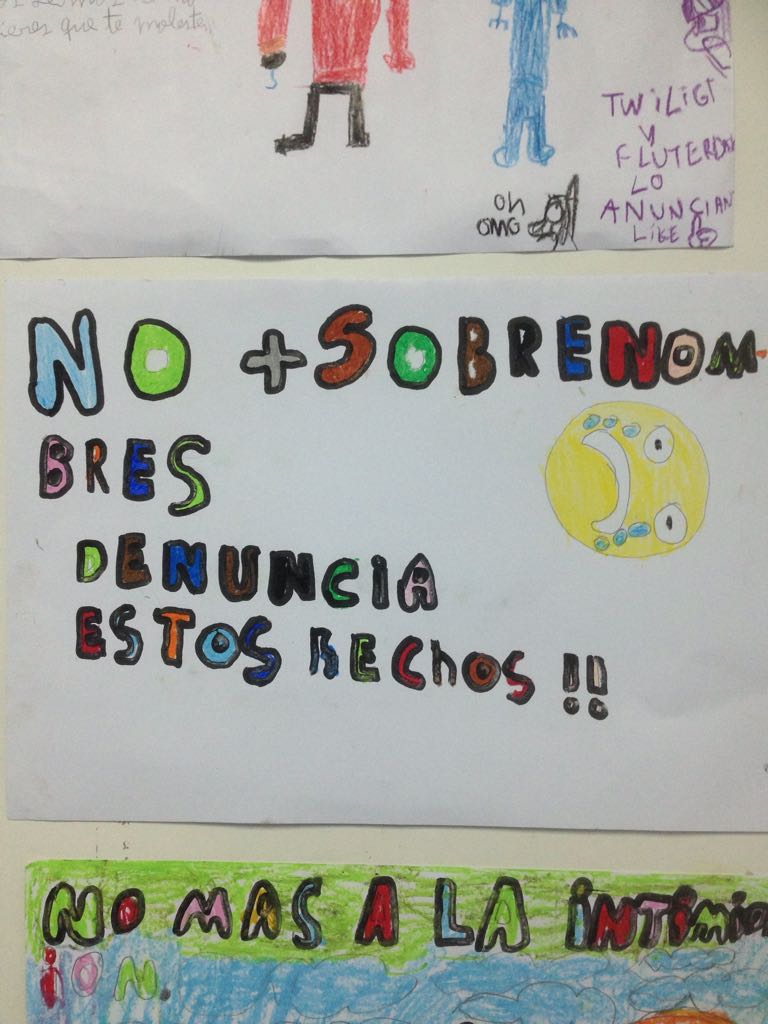 que te moleste
TWILIGT
Y
FLUTERDA
LO
ANUNCIAN
LIKE
OH
OMG
NO + SOBRENOM-
BRES
DENUNCIA
ESTOS HECHOS !!
NO MAS A LA INTIMID
ION.